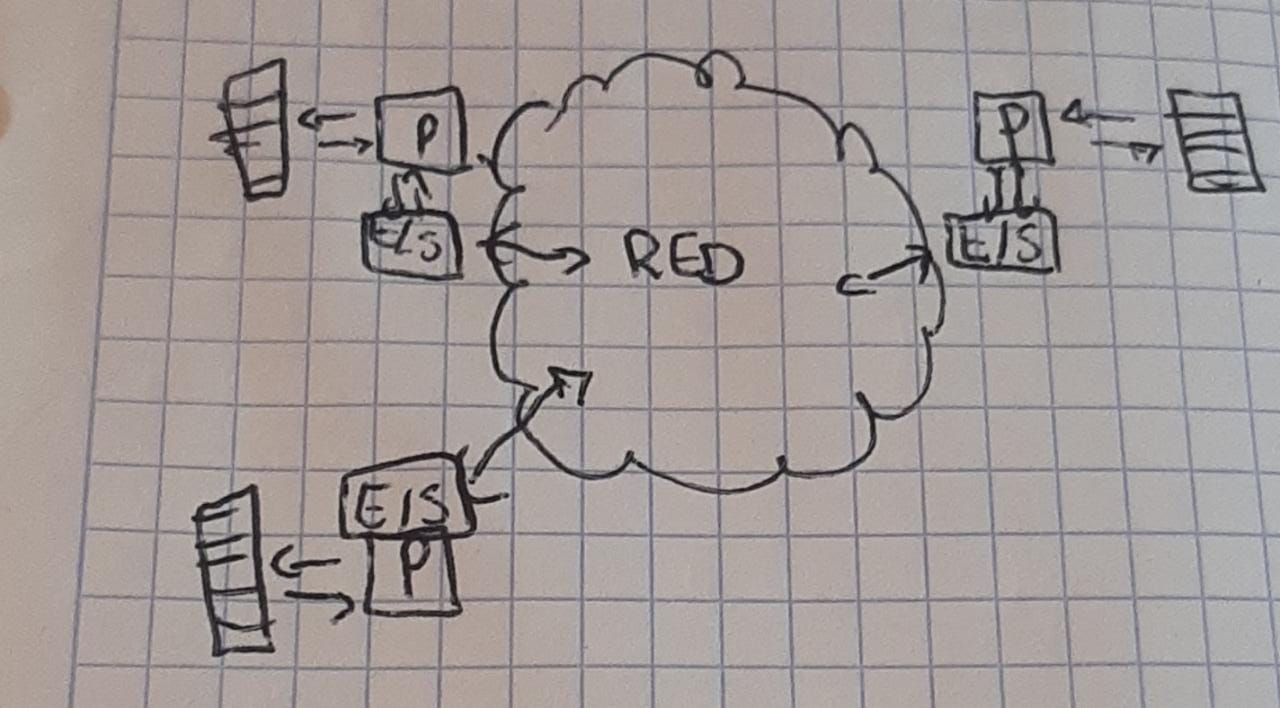 P
P
E/S
RED
E/S
E/S
P